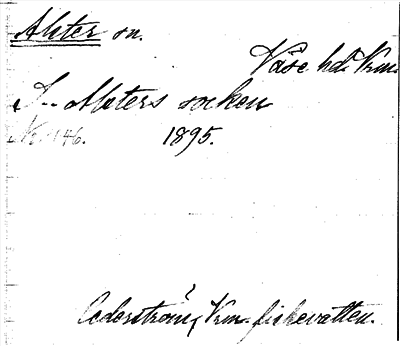 Alster sn.
Väse hd. Vrm.
I Alsters socken
Nr. 146. 1895.
Cederström, Vrm. fiskevatten.